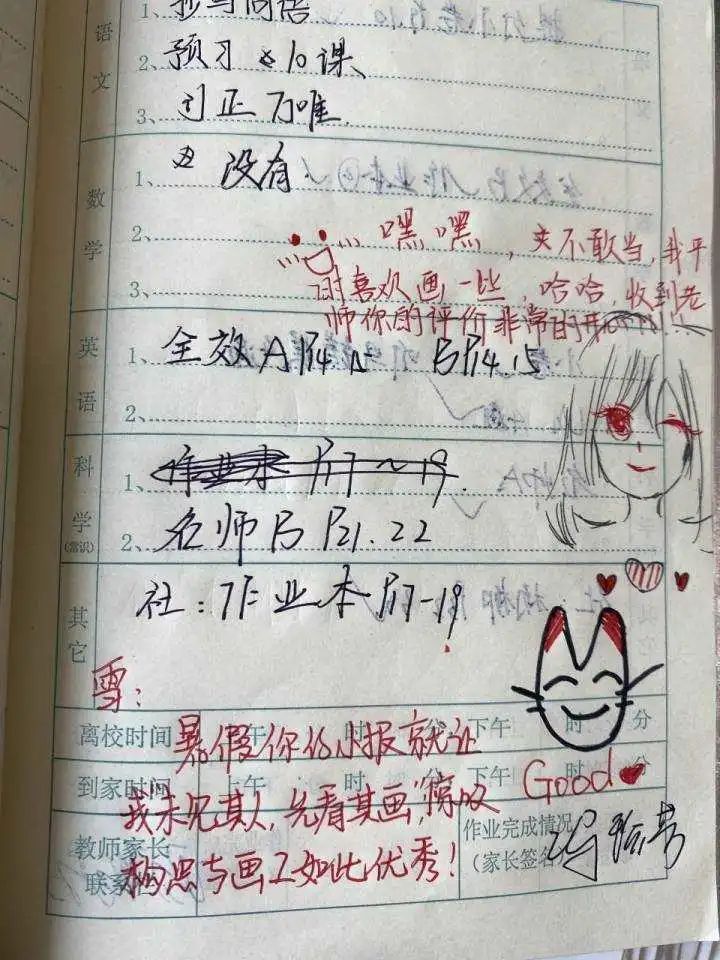 语文
1、抄写词语
2、预习 10课、
3、订正万唯.
数学
1、没有.
2、
嘿嘿，夫不敢当，我平
3、时喜欢画一些，哈哈，收到老
师你的评价非常的开心!!!
英语
1、全效A P14.15 B P14.15
2、
科学(常识)
1、作业本 P17~19.
2、名师B P21.22
其它
社：作业本P17-19
雪：
离校时间 上午 时 分 下午 时 分
暑假你的小报就让
到家时间 上午 时 分 下午 时 分
我未见其人，先看其画，惊叹
Good
教师家长联系栏
构思与画工如此优秀！
作业完成情况
(家长签名)